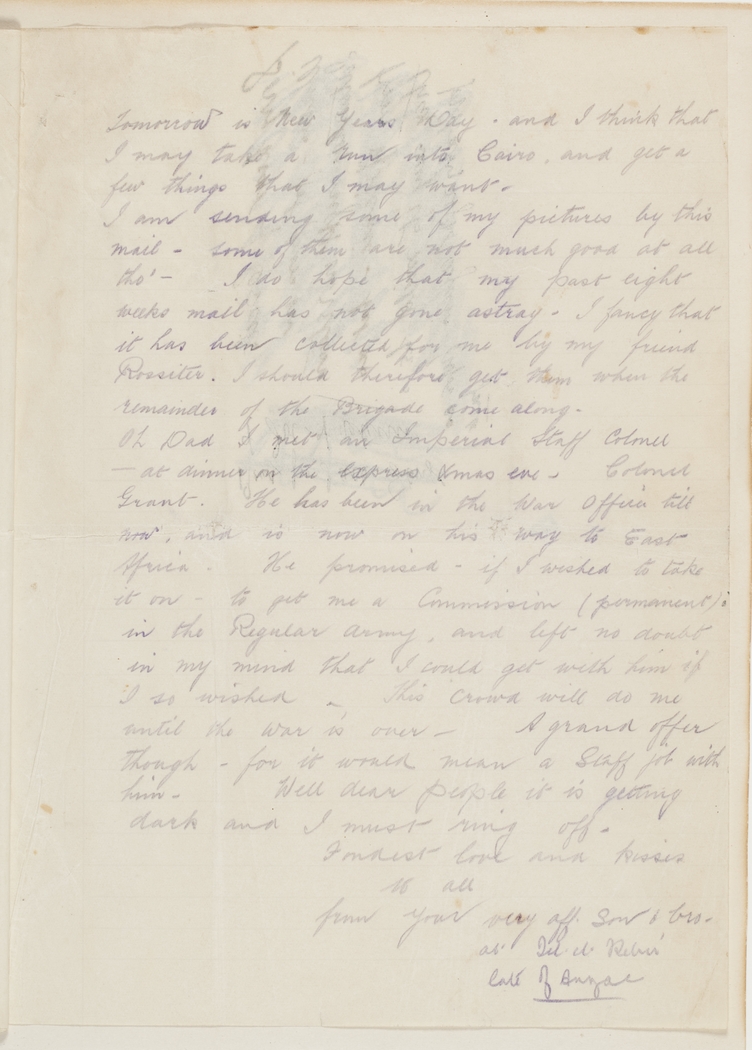 Tomorrow is New Years Day - and I think that
I may take a run into Cairo, and get a
few things that I may want -
I am sending some of my pictures by this
mail - some of them are not much good at all
tho' - I do hope that my past eight
weeks mail has not gone astray - I fancy that
it has been collected for me by my friend
Rossiter. I should therefore get them when the
remainder of the Brigade come along -
Oh Dad I met an Imperial Staff Colonel
- at dinner on the express Xmas eve - Colonel
Grant. He has been in the War Office till
now, and is now on his way to East
Africa - He promised - if I wished to take
it on - to get me a Commission (permanent).
in the Regular Army, and left no doubt
in my mind that I could get with him if
I so wished - This crowd will do me
until the war is over - A grand offer
though - for it would mean a Staff job with
him - Well dear people it is getting
dark and I must ring off -
Fondest love and kisses
to all
from your very aff. Son & bro -
at Tel el Kebir
late of Anzac